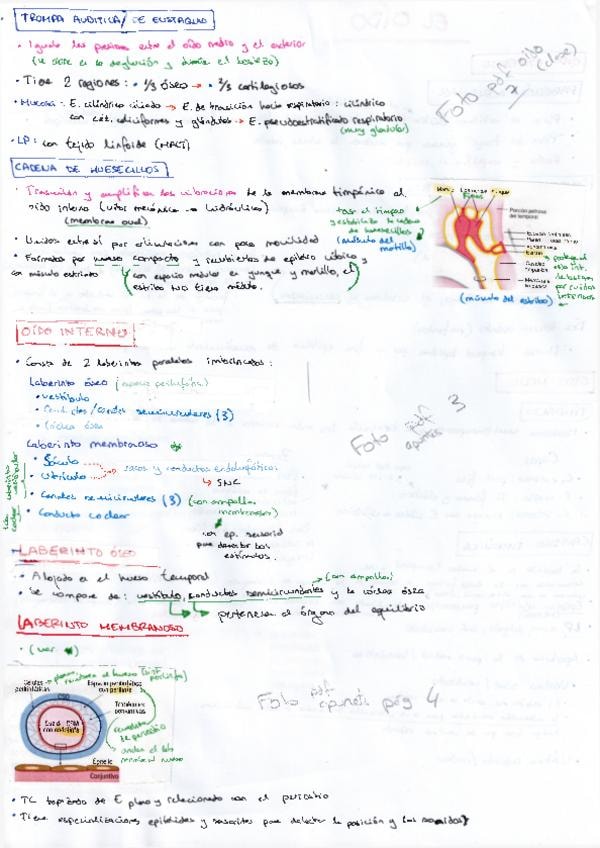 TROMPA AUDITIVA / DE EUSTAQUIO
• Iguala las presiones entre el oído medio y el exterior
(se abre en la deglución y durante el bostezo)
• Tiene 2 regiones: • 1/3 óseo → • 2/3 cartilaginosos
• Mucosa: E. cilíndrico ciliado → E. de transición hacia respiratorio: cilíndrico
con cél. caliciformes y glándulas → E. pseudoestratificado respiratorio
(muy glandular)
• LP: con tejido linfoide (MALT)
Foto pdf oído
(clase)
7
CADENA DE HUESECILLOS
• Transmiten y amplifican las vibraciones de la membrana timpánica al
oído interno (vibr. mecánica → hidráulica)
(membrana oval)
• Unidos entre sí por articulaciones con poca movilidad
• Formados por hueso compacto y recubiertos de epitelio cúbico y
con músculo estriado
con espacio medular en yunque y martillo, el
estribo NO tiene médula.
y estabiliza la cadena
de huesecillos
(músculo del
martillo)
Porción petrosa
del temporal
(músculo del estribo)
OÍDO INTERNO
• Consta de 2 laberintos paralelos imbricados:
Laberinto óseo
• vestíbulo
• Conductos / canales semicirculares (3)
• Cóclea ósea
Foto pdf
apuntes 3
Laberinto membranoso
• Sáculo
• Utrículo → sacos y conductos endolinfáticos
↳ SNC
• Canales semicirculares (3) (con ampollas
membranosas)
• Conducto coclear
con ep. sensorial
para detectar los
estímulos.
LABERINTO ÓSEO
• Alojado en el hueso temporal
(con ampollas)
• Se compone de: vestíbulo, conductos semicirculares y la cóclea ósea
pertenecen al órgano del equilibrio
LABERINTO MEMBRANOSO
• (ver
Foto pdf apuntes pág 4
Células
perilinfáticas
Espacio perilinfático
con perilinfa
Trabéculas
conjuntivas
Epitelio
Conjuntivo
• TC tapizado de E plano y relacionado con el periostio
• Tiene especializaciones epiteliales y sensoriales para detectar la posición y los sonidos